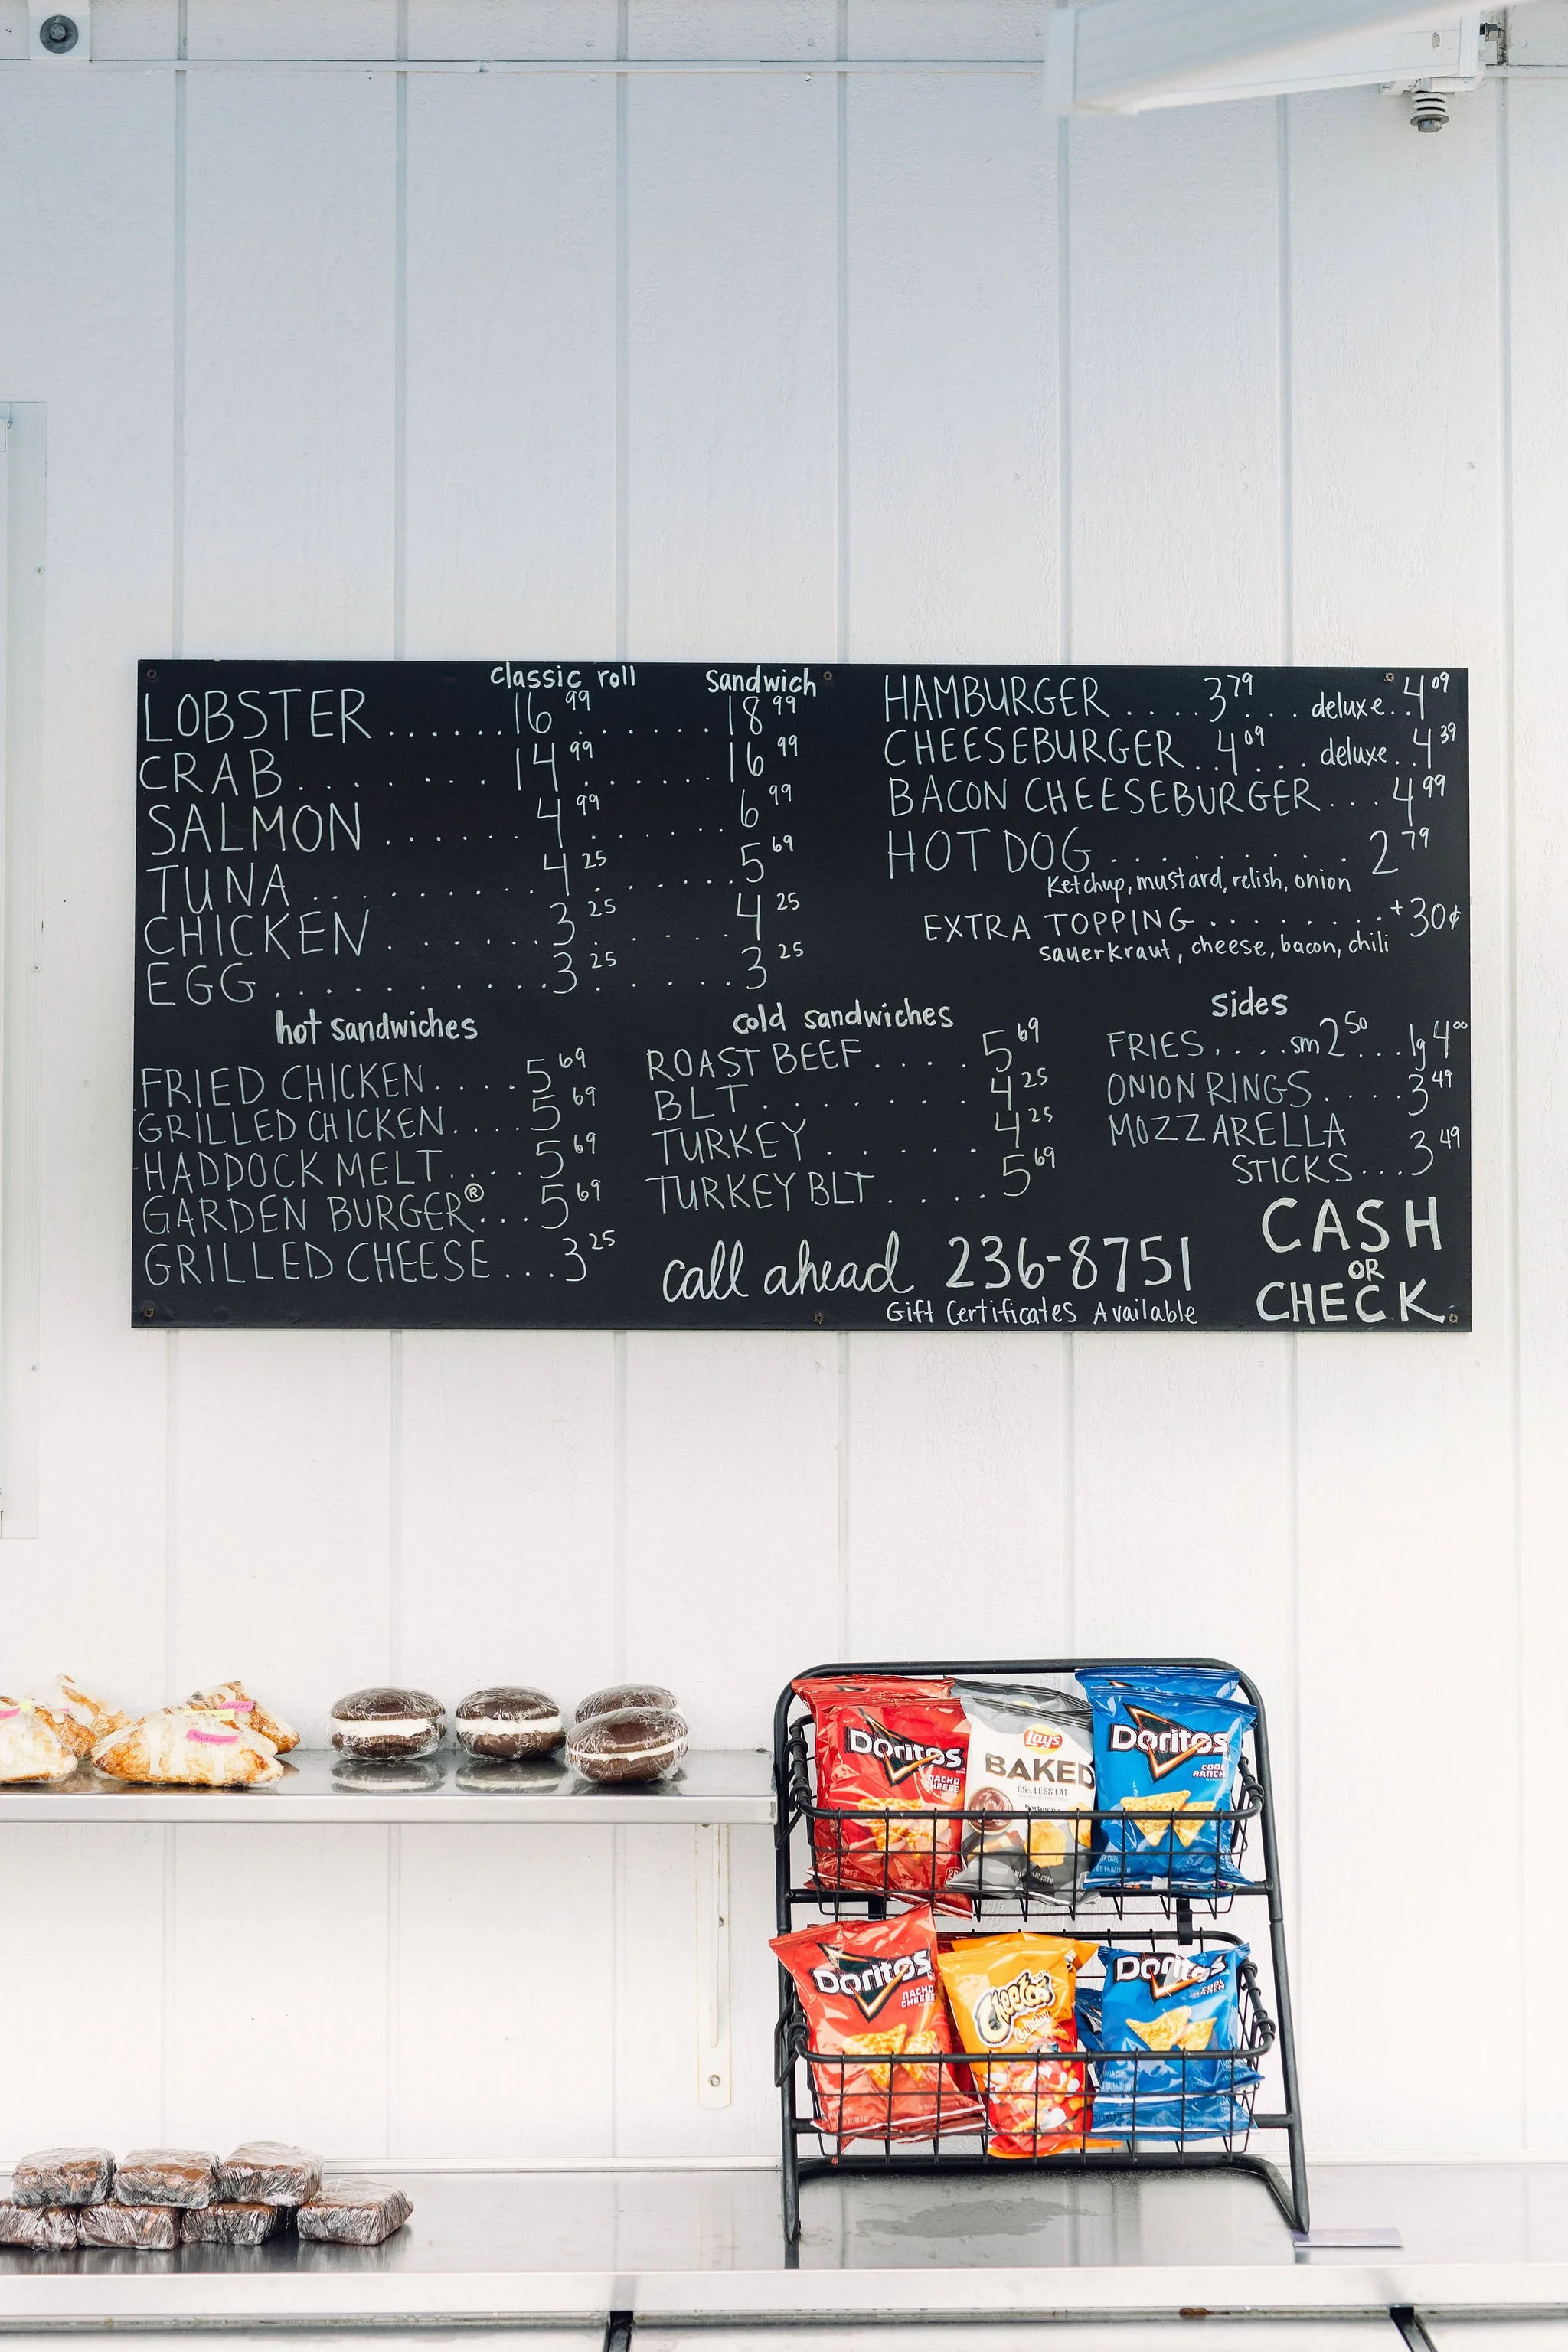 classic roll sandwich
LOBSTER......16.99.......18.99
CRAB.........14.99.......16.99
SALMON.......4.99.......6.99
TUNA.........4.25.......5.69
CHICKEN......3.25.......4.25
EGG..........3.25.......3.25
HAMBURGER....3.79....deluxe..4.09
CHEESEBURGER..4.09....deluxe..4.39
BACON CHEESEBURGER...4.99
HOT DOG..............2.79
Ketchup, mustard, relish, onion
EXTRA TOPPING........+30¢
sauerkraut, cheese, bacon, chili
hot sandwiches
FRIED CHICKEN....5.69
GRILLED CHICKEN....5.69
HADDOCK MELT....5.69
GARDEN BURGER®...5.69
GRILLED CHEESE...3.25
cold sandwiches
ROAST BEEF....5.69
BLT.........4.25
TURKEY......4.25
TURKEY BLT.....5.69
sides
FRIES....sm 2.50...lg 4.00
ONION RINGS.....3.49
MOZZARELLA
STICKS...3.49
call ahead 236-8751
Gift Certificates Available
CASH
OR
CHECK
Doritos
NACHO
CHEESE
Lay's
BAKED
65% LESS FAT
Doritos
COOL
RANCH
Doritos
NACHO
CHEESE
Cheetos
Crunchy
Doritos
COOL
RANCH